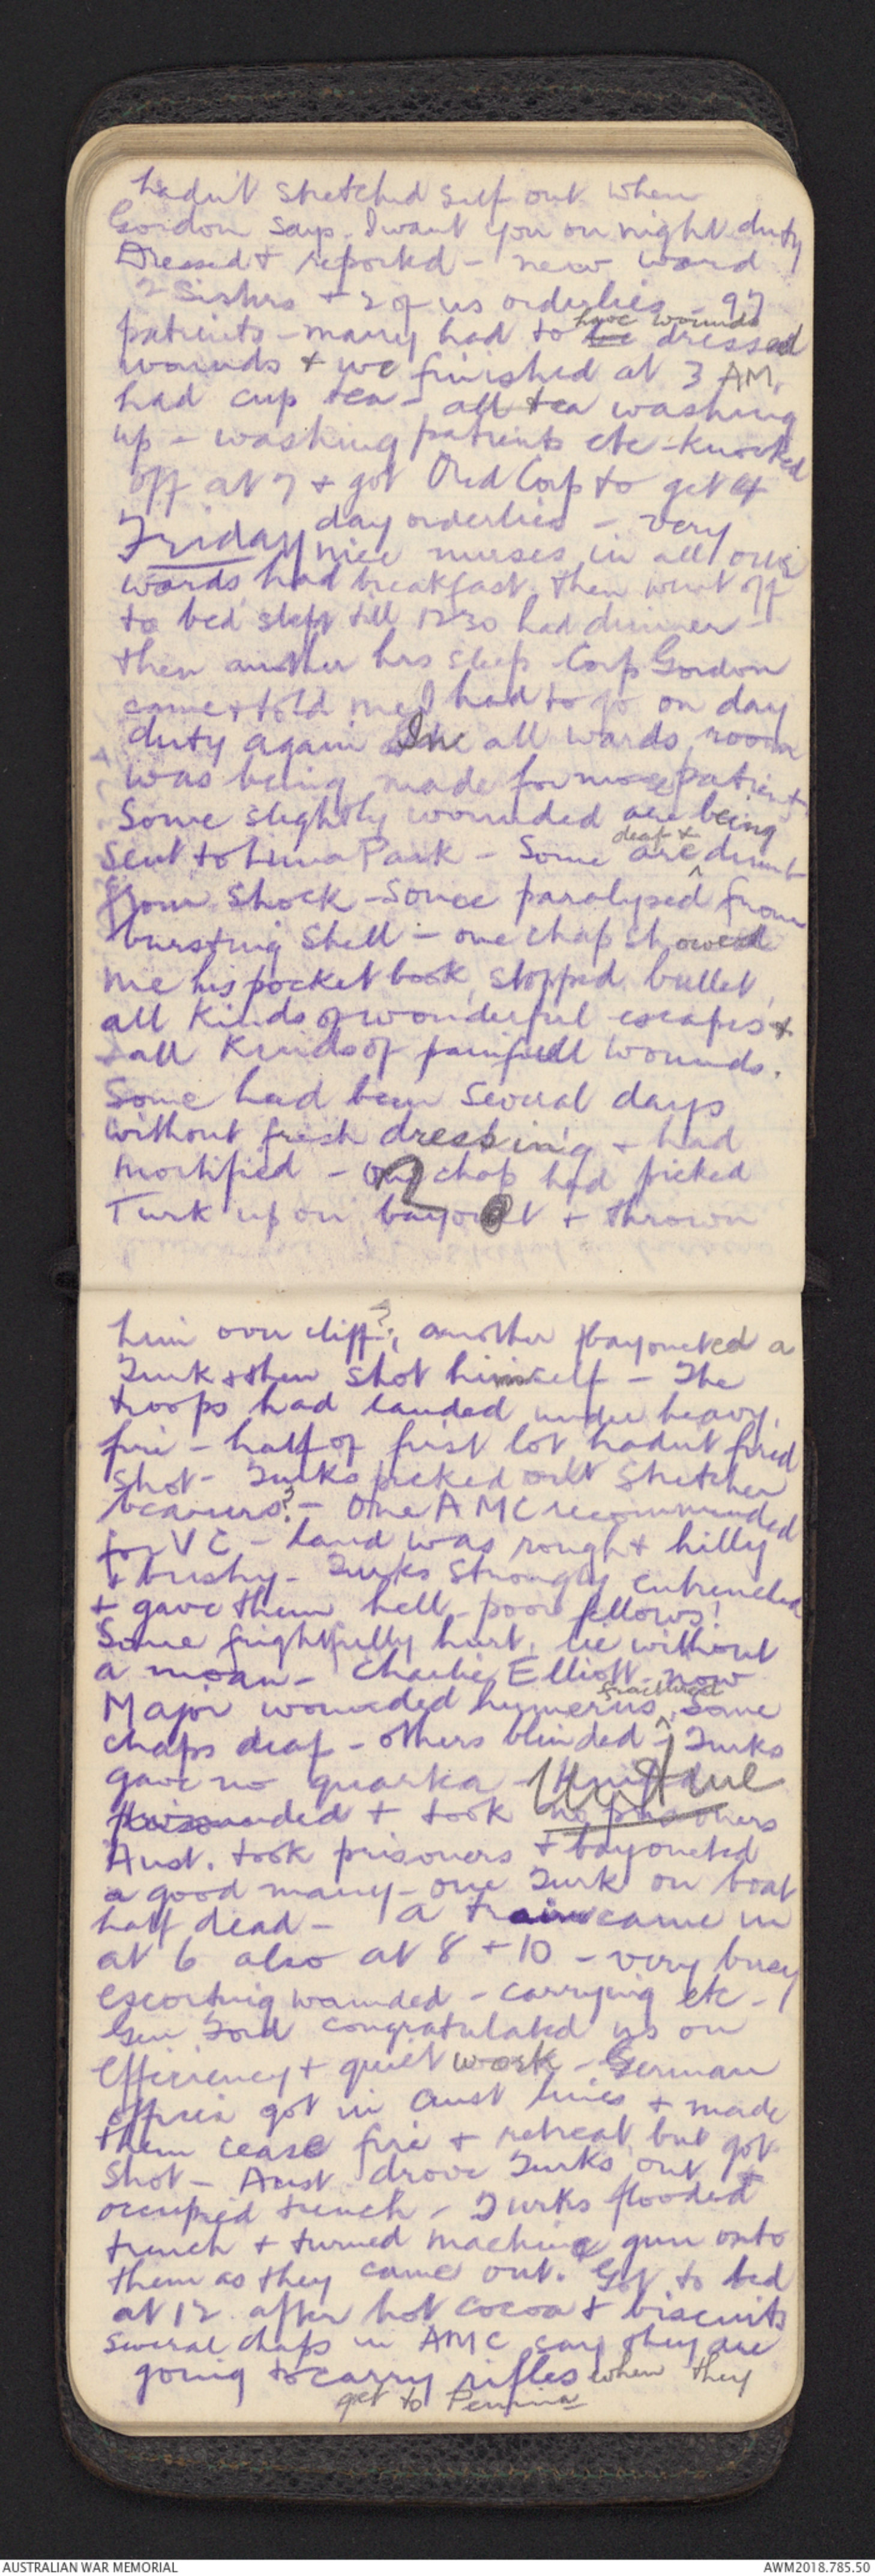 hadn't stretched self out when
Gordon says - I want you on night duty
Dressed & reported - new ward
2 Sisters + 2 of us orderlies - 97
have wounds
patients - many had to be dressed
wounds & we finished at 3 AM,
had cup tea - all tea washing
up - washing patients etc - knocked
off at 7 & got Ord Corp to get 4
day orderlies - very
Friday nice nurses in all our
wards had breakfast then went off
to bed slept till 1230 had dinner -
then another hrs sleep - Corp Gordon
came & told me I had to go on day
duty again In all wards room
was being made for more patients
Some slightly wounded are being
deaf &
sent to Luna Park - Some are ^ dumb
from shock - Some paralysed from
bursting shell - one chap showed
me his pocket book, stopped bullet,
all kinds of wonderful escapes &
- all kinds of painfull wounds.
Some had been several days
without fresh dressing & had
mortified - one chap had picked
?
Turk up on bayonet & thrown
him over cliff?; another bayoneted a
Turk & then shot himself - The
troops had landed under heavy
fire - half of first lot hadnt fired
shot - Turks picked out stretcher
bearers? - One AMC recommended
for VC - land was rough & hilly
& bushy - Turks strongly entrenched
& gave them hell - poor fellows!
Some frightfully hurt, lie without
a moan - Charlie Elliott now
fractured
Major wounded humerus, Some
chaps deaf - others blinded - Turks
gave no quarka -
Untrue
wounded & took no prisoners
Aust. took prisoners & bayoneted
a good many - one Turk on boat
half dead - a train came in
at 6 also at 8 + 10 - very busy
escorting wounded - carrying etc -
Gen Ford congratulated us on
efficiency & quiet work - German
officer got in Aust lines & made
them cease fire & retreat but got
shot - Aust drove Turks out &
occupied trench - Turks flooded
trench & turned machine gun onto
them as they came out. Got to bed
at 12 after hot cocoa & biscuits
several chaps in AMC say they are
going to carry rifles when they
get to Penina
AUSTRALIAN WAR MEMORIAL
AWM2018.785.50